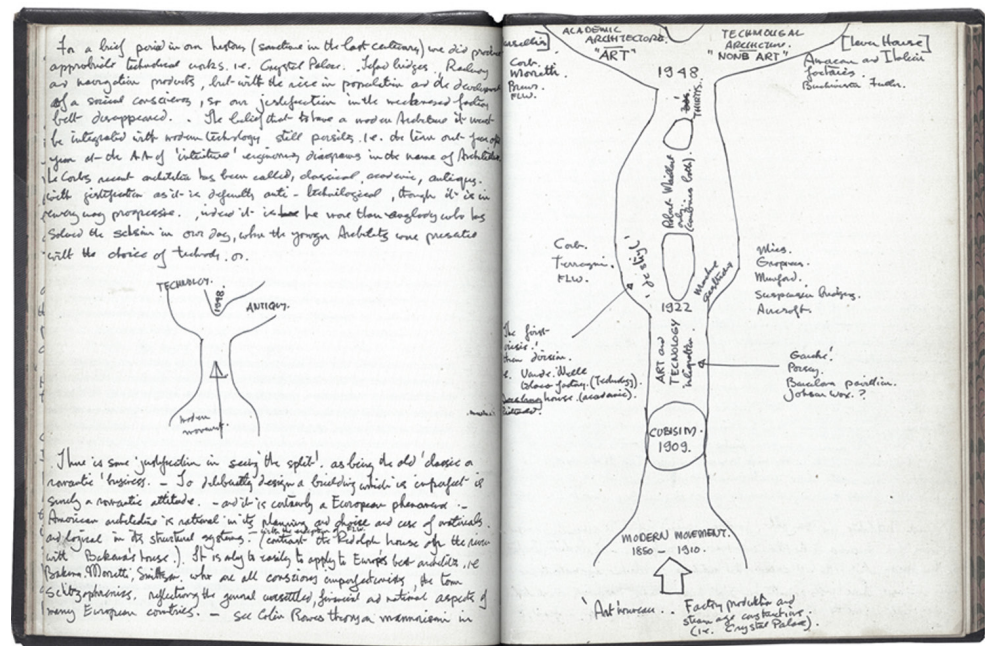 For a brief period in our history (sometime in the last century) we did produce
appropriate technical works. i.e. Crystal Palace. bridges. Railway
and navigation products, but with the rise in population and the development
of a social conscience, so our justification in the
belt disappeared. . The belief that to have a modern Architecture it must
be integrated with modern technology still persists. i.e. the turn out
year at the AA of engineering diagrams in the name of Architecture
Le Corbs recent architecture has been called, classical, academic, antique.
with justification as it is definitely anti-technological, though it is in
every way progressive. , indeed it is he more than anybody who has
solved the schism in our day, when the younger Architects were presented
with the choice of technol. or.
TECHNOLOGY.
1948.
ANTIQUE.
modern
movement.
There is some justification in seeing 'the split'. as being the old 'classic or
romantic' business. - To deliberately design a building which is imperfect is
surely a romantic attitude. - and it is certainly a European phenomena -
American architecture is rational in its planning and choice and use of materials.
and logical in its structural systems. - (contrast the Rudolph house on the river
with Bakema's house.). It is only to easily to apply to Europe's best architects, i.e
Bakema, Moretti, Smithson, who are all conscious imperfectionists, the term
Schizophrenics, reflecting the general unsettled, financial and national aspects of
many European countries. - see Colin Rowes theory on mannerism in
ACADEMIC
ARCHITECTURE.
"ART"
TECHNOLOGAL
ARCHITECTURE.
"NONE ART"
Corb.
Moretti.
Breuer.
FLW.
[Lever House]
American and Italian
factories.
Buckminster Fuller.
1948
THIRTIES.
Robert Maillart
only.
(combines both).
Corb.
Terragni.
FLW.
'de stijl'
Machine
aesthetic
Mies.
Gropius.
Mumford.
Suspension bridges.
Aircraft.
1922
The first
crisis!
Van der Nelle
tobacco factory. (Technology).
house. (academic).
ART and
TECNOLOGY
integration
Gaudi!
Perret.
Barcelona pavillion.
Johnson wax. ?
CUBISIM.
1909.
MODERN MOVEMENT.
1850 - 1910.
'Art nouveau . . .
Factory production and
steam age construction.
(i.e. Crystal Palace).